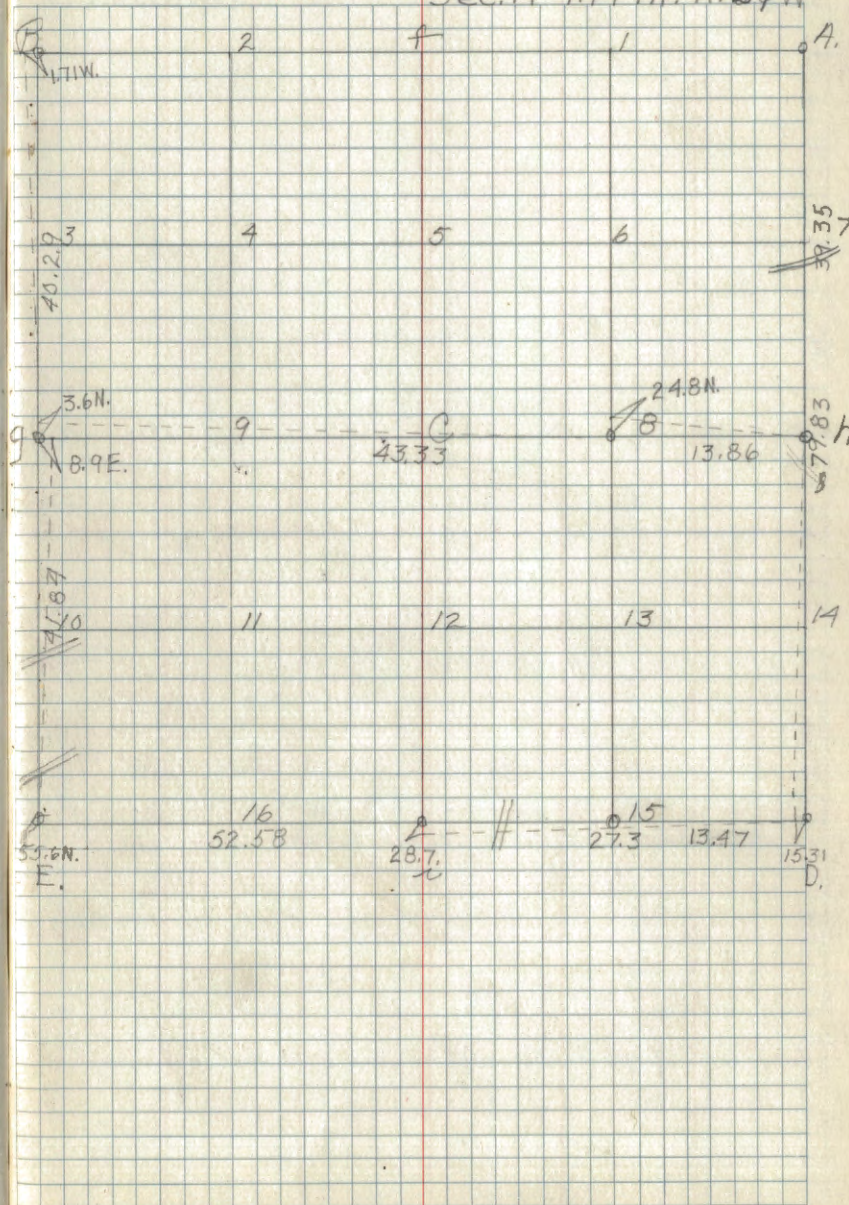 B 2 f 1 A.
1.71W.
3 4 5 6 7
40.29 39.35
3.6N. 24.8N.
g 9 C 8 h
8.9E. 43.33 13.86 79.83
10 11 12 13 14
41.84
16 15
55.6N. 52.58 28.7. 27.3 13.47 15.31
E. i D.